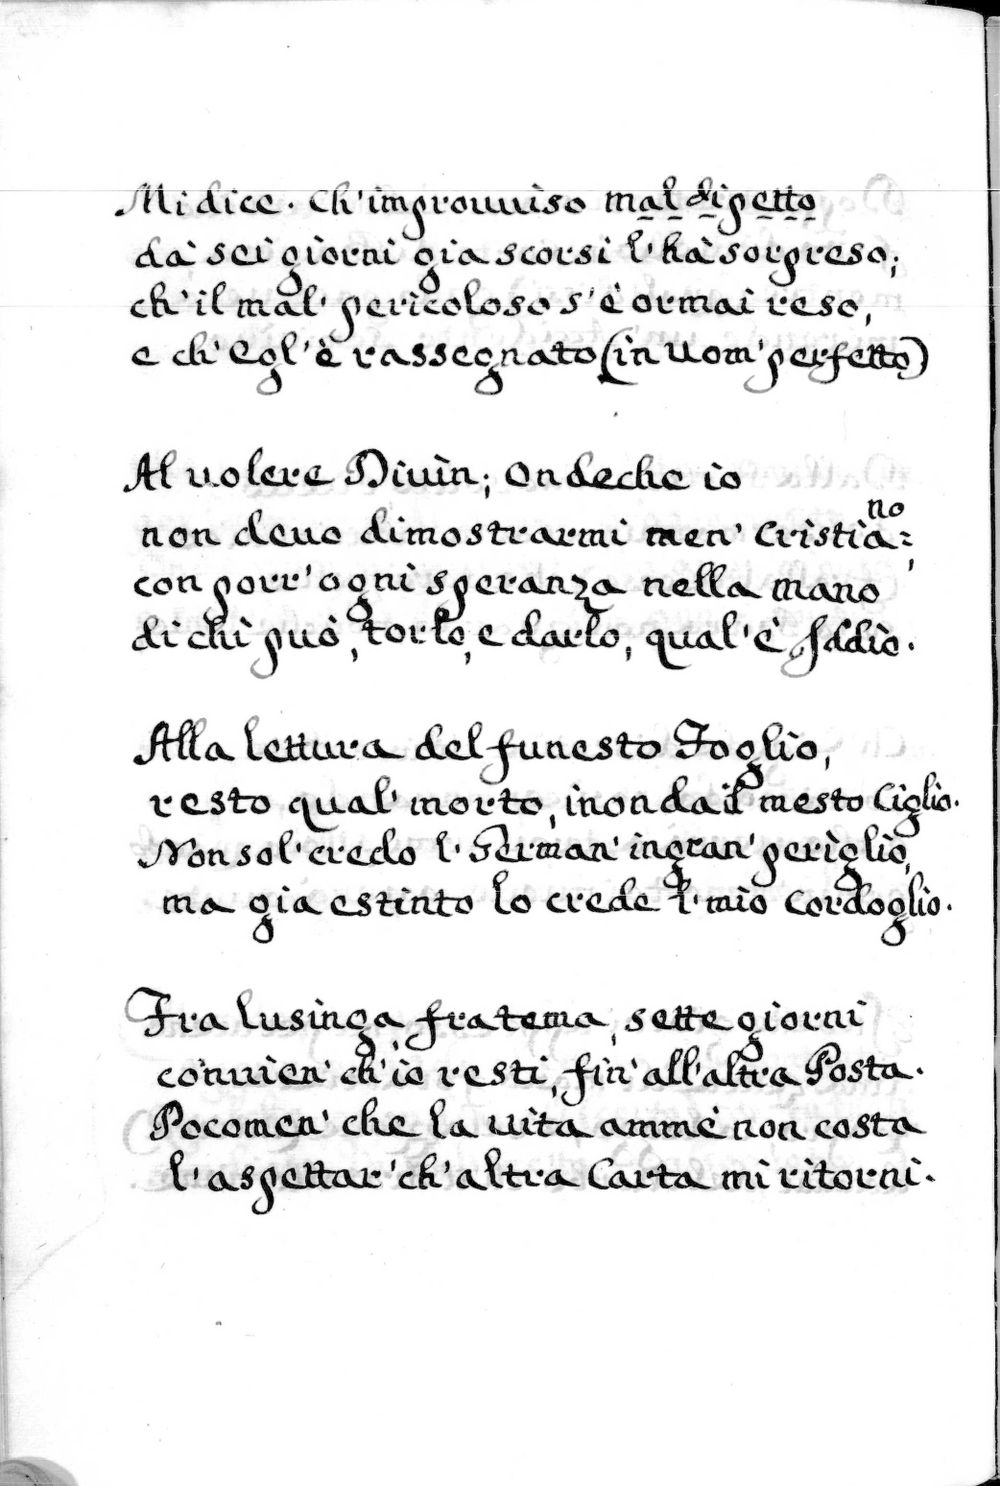 Mi dice. Ch'improuuiso mal di petto
dà sei giorni già scorsi l'hà sorpreso;
ch'il mal' pericoloso s'è ormai reso,
e ch'Egl'è rassegnato (in Uom' perfetto)
Al uolere Diuin; Ondeche io
non deuo dimostrarmi men' Cristiano:
con porr' ogni speranza nella mano
di chi può, torlo, e darlo, qual'è Iddio.
Alla lettura del funesto Foglio,
resto qual' morto, inonda il mesto Ciglio.
Non sol' credo l'German' in gran' periglio,
ma già estinto lo crede l'mio Cordoglio.
Fra lusinga, fra tema, sette giorni
conuien' ch'io resti, fin' all'altra Posta.
Poco men' che la uita ammè non costa
l'aspettar' ch'altra Carta mi ritorni.